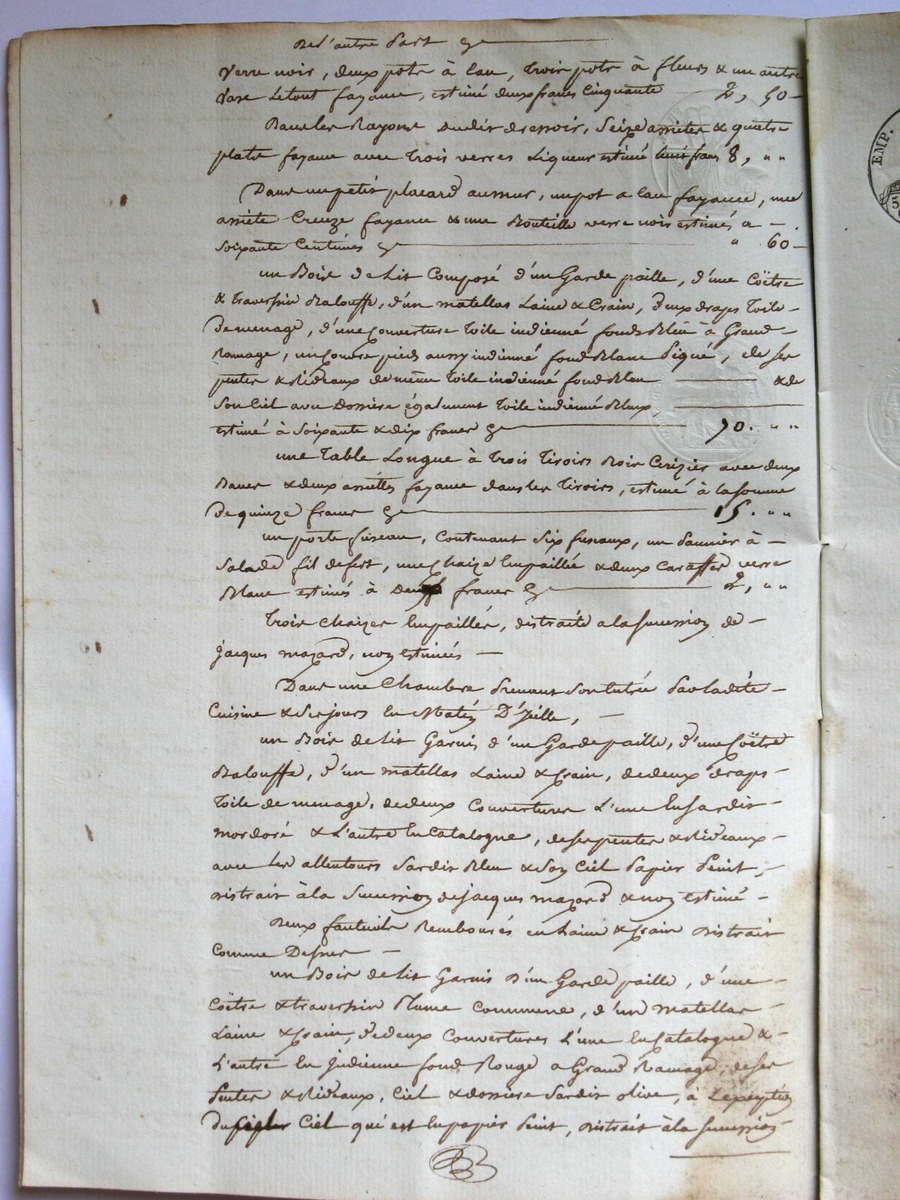 De l'autre part
verre noir, deux pots à eau, trois pots à fleurs & un autre
vase le tout fayance, estimé deux francs cinquante 2, 50
Dans les Rayons dudit dressoir, seize assiettes & quatre
plats fayance avec trois verres Liqueur estimé huit francs 8, " "
Dans un petit placard au mur, un pot a eau fayance, une
assiète Creuze fayance & une Bouteille verre noir estimés a
soixante Centimes " 60
un Bois de Lit Composé d'un Garde paille, d'une Coëtre
& traversin Balouffe, d'un matellas Laine & Crain, deux draps toile
de menage, d'une Couverture toile indienne fonds Bleu à Grand
Ramage, un Couvre pieds aussy indienne fond Blanc Piqué, de ses
pentes & Rideaux de même toile indienne fond Bleu & de
son Ciel avec Dossier également toile indienne Bleux,
estimé à Soixante & dix francs 70. " "
une Table Longue à trois tiroirs Bois Cerizier avec deux
Bancs & deux assiettes fayance dans les tiroirs, estimé à la somme
De quinze francs 15. " "
un porte fuseau, Contenant six fuseaux, un pannier à
Salade fil de fert, une Chaize Empaillée & deux Caraffes verre
Blanc estimés à deux francs 2, " "
trois Chaizes Empaillés, distraits a la succession de
jacques mazard, non estimés
Dans une Chambre prenant son Entrée par la dite
Cuisine & ses jours
un Bois de Lit Garnis d'un Garde paille, d'une Coëtre
Balouffe, d'un matellas Laine & Crain, de deux draps
toile de menage, de deux Couvertures L'une En Sardis
mordoré & L'autre En Catalogne, de ses pentes & Rideaux
avec Les allentours Sardis Bleu & son Ciel Papier Peint,
distrait à la Succession de jacques mazard & non estimé
Deux fauteuils Rembourés en Laine & Crain distrait
Comme Dessus
un Bois de Lit Garnis d'un Garde paille, d'une
Coëtre & traversin Plume Commune, d'un matellas
Laine & Crain, de deux Couvertures L'une En Catalogne &
L'autre En Indienne fond Rouge a Grand Ramage, de ses
Pentes & Rideaux, Ciel & dossier Sardis olive, à L'exception
du Ciel qui est En papier Peint, distrait à la succession
EMP.